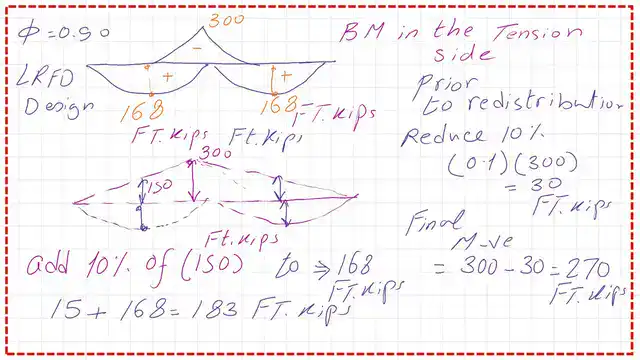 Φ=0.90
LRFD
Design
300
-
+
+
168
168
FT.Kips
Ft.Kips
FT.Kips
BM in the Tension
side
Prior
to redistribution
Reduce 10%
(0.1)(300)
= 30
FT.Kips
Final
M-ve
= 300-30=270
FT.Kips
300
150
Ft.Kips
add 10% of (150) to ⇒ 168
FT.Kips
15 + 168 = 183 FT.Kips